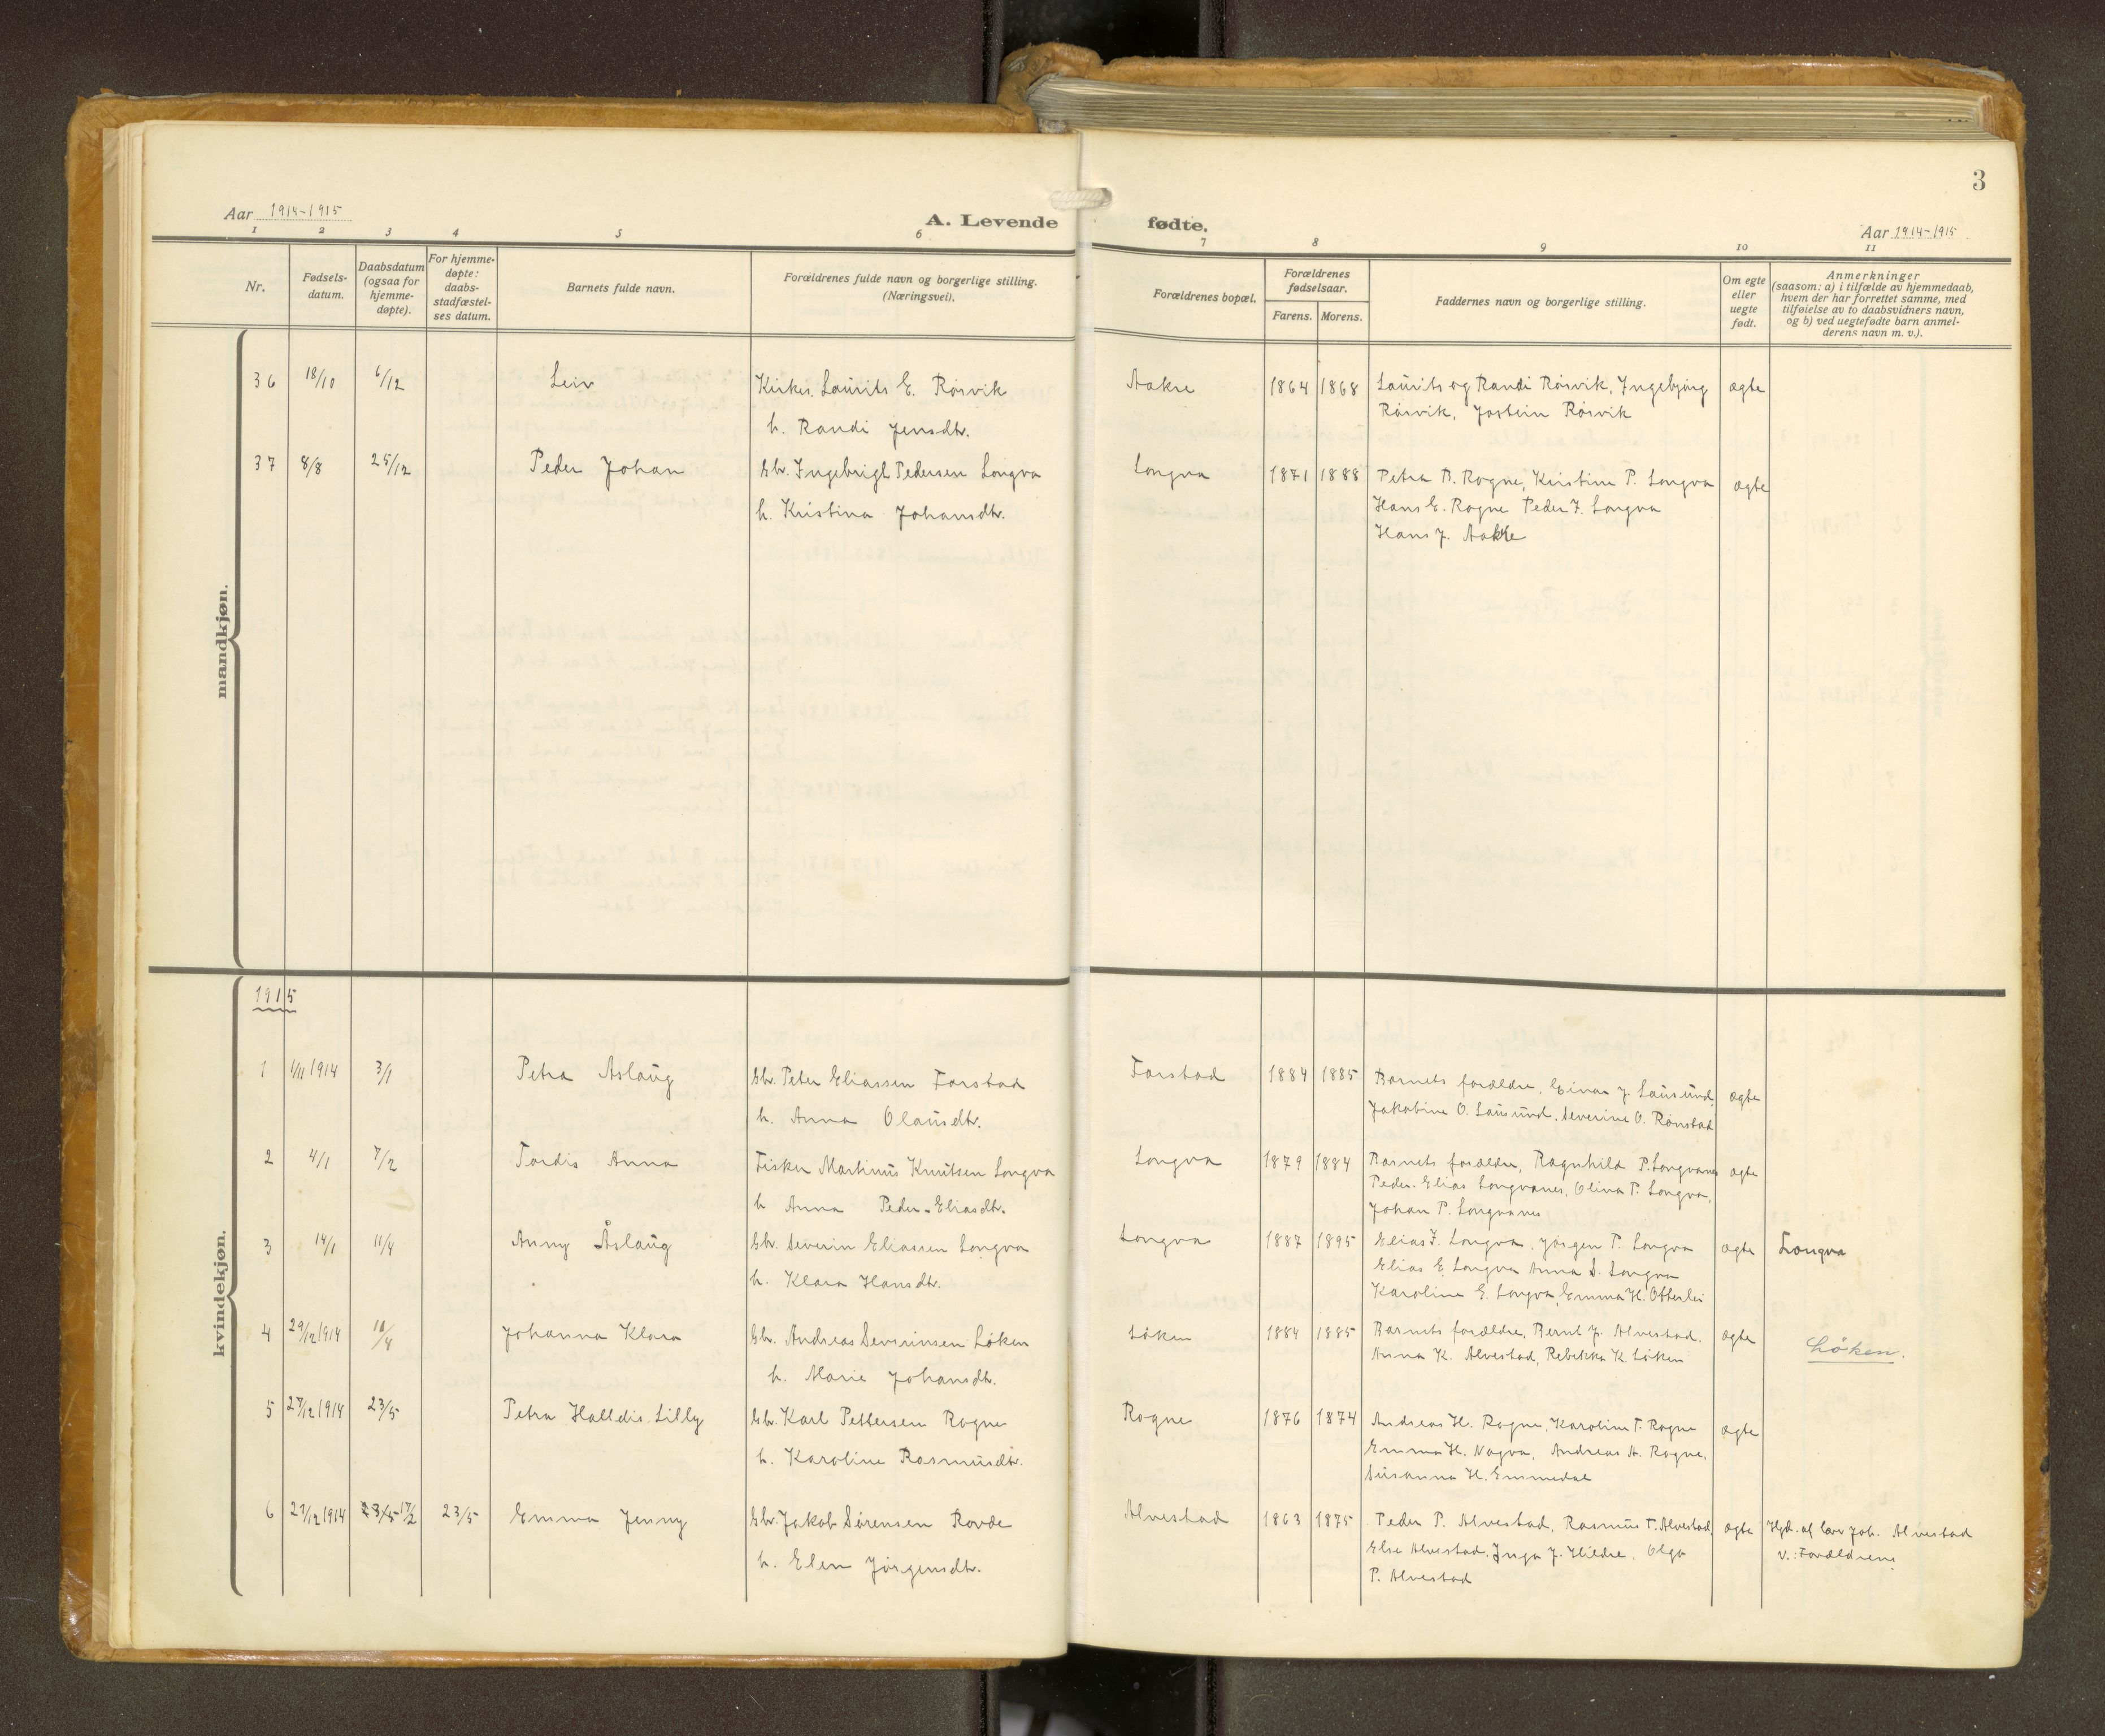 3
Aar 1914-1915
A. Levende fødte.
Aar 1914-1915
1 2 3 4 5 6 7 8 9 10 11
Nr.
Fødsels-
datum.
Daabsdatum
(ogsaa for
hjemme-
døpte).
For hjemme-
døpte:
daabs-
stadfæstel-
ses datum.
Barnets fulde navn.
Forældrenes fulde navn og borgerlige stilling.
(Næringsvei).
Forældrenes bopæl.
Forældrenes
fødselsaar.
Farens. Morens.
Faddernes navn og borgerlige stilling.
Om egte
eller
uegte
født.
Anmerkninger
(saasom: a) i tilfælde av hjemmedaab,
hvem der har forrettet samme, med
tilføielse av to daabsvidners navn,
og b) ved uegtefødte barn anmel-
derens navn m. v.).
mandkjøn.
36 18/10 6/12 Leiv Kirkes. Laurits E. Røsvik Aakre 1864 1868 Laurits og Randi Røsvik, Ingebjørg ægte
h. Randi Jensdtr. Røsvik, Jostein Røsvik
37 8/8 25/12 Peder Johan Gbr. Ingebrigt Pedersen Longva Longva 1871 1888 Petra B. Rogne, Kristine P. Longva ægte
h. Kristina Johansdtr. Hans E. Rogne Peder I. Longva
Hans J. Aakre
kvindekjøn.
1915
1 1/11 1914 3/1 Petra Aslaug Gbr. Peter Eliassen Farstad Farstad 1884 1885 Barnets forældre, Einar J. Lausund, ægte
h. Anna Olausdtr. Jakobine O. Lausund, Severine O. Rønstad
2 4/1 7/2 Tordis Anna Fisker Martinus Knutsen Longva Longva 1879 1884 Barnets forældre, Ragnhild P. Longvanes ægte
h Anna Peder-Eliasdtr. Peder-Elias Longvanes, Olina P. Longva,
Johan P. Longvanes
3 14/1 11/4 Anny Åslaug Gbr. Severin Eliassen Longva Longva 1887 1895 Elias I. Longva, Jørgen P. Longva ægte Longva
h. Klara Hansdtr. Elias E. Longva Anna S. Longva
Karoline E. Longva, Emma H. Otterlei
4 29/12 1914 11/4 Johanna Klara Gbr. Andreas Severinsen Løken Løken 1884 1885 Barnets forældre, Bernt J. Alvestad, ægte Løken.
h. Marie Johansdtr. Anna K. Alvestad, Rebekka K. Løken
5 27/12 1914 23/5 Petra Halldis Lilly Gbr. Karl Pettersen Rogne Rogne 1876 1874 Andreas H. Rogne, Karoline T. Rogne ægte
h. Karoline Rasmusdtr. Emma H. Nogva, Andreas A. Rogne,
Susanna H. Emmedal
6 27/12 1914 23/5 17/2 23/5 Emma Jenny Gbr. Jakob Sørensen Rovde Alvestad 1863 1875 Peder P. Alvestad, Rasmus T. Alvestad, ægte Hjd. af lærer Joh. Alvestad
h. Elen Jørgensdtr. Else Alvestad, Inga J. Hildre, Olga v.: Forældrene
P. Alvestad